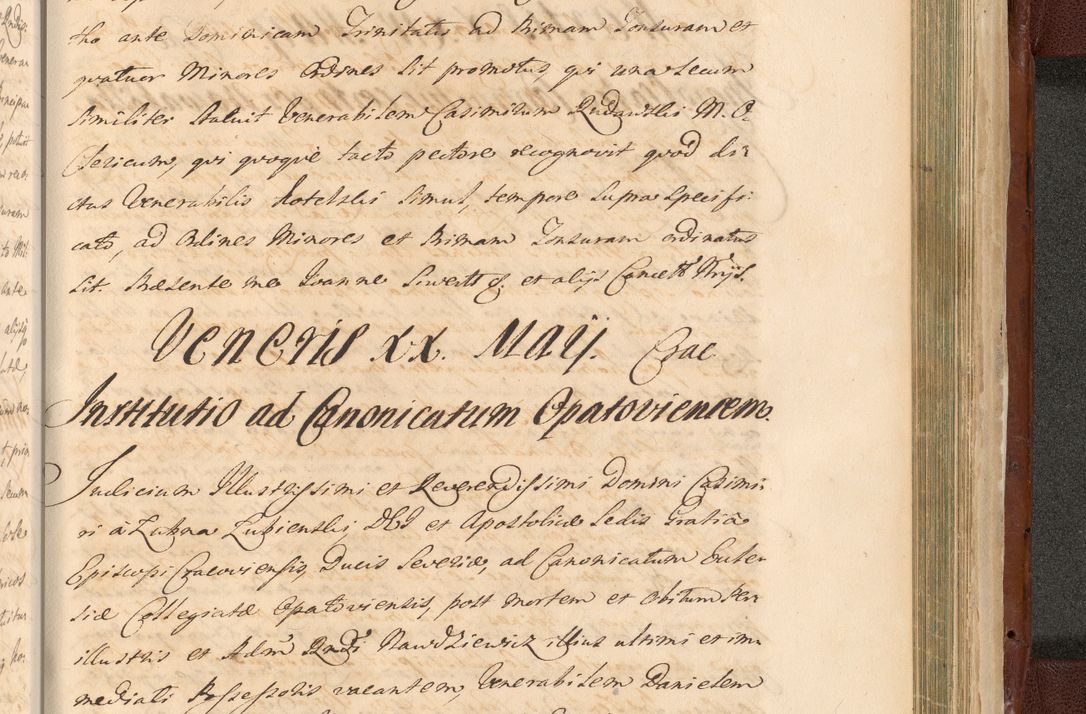 tho ante Dominicam Trinitatis ad Primam Tonsuram et
quatuor Minores Ordines sit promotus, qui una secum
similiter statuit Venerabilem Casimirum Rudawski M. O.
Clericum, qui quoque tacto pectore recognovit quod di:
ctus Venerabilis Kotelski simul, tempore supra specifi:
cato, ad Ordines Minores et Primam Tonsuram ordinatus
sit. Præsente me Joanne et alijs Cancell:
Veneris XX. Maij. Crac
Institutio ad Canonicatum Opatoviensem.
Judicium Illustrissimi et Reverendissimi Domini Casimi:
ri à Łubna Łubienski, DEI et Apostolicæ Sedis Gratia
Episcopi Cracoviensis, Ducis Severiæ, ad Canonicatum Eccle
siæ Collegiatæ Opatoviensis, post mortem et obitum Per:
illustris et Adm Rndi Nawdziewicz illius ultimi et im:
mediati Possessoris vacantem, Venerabilem Danielem